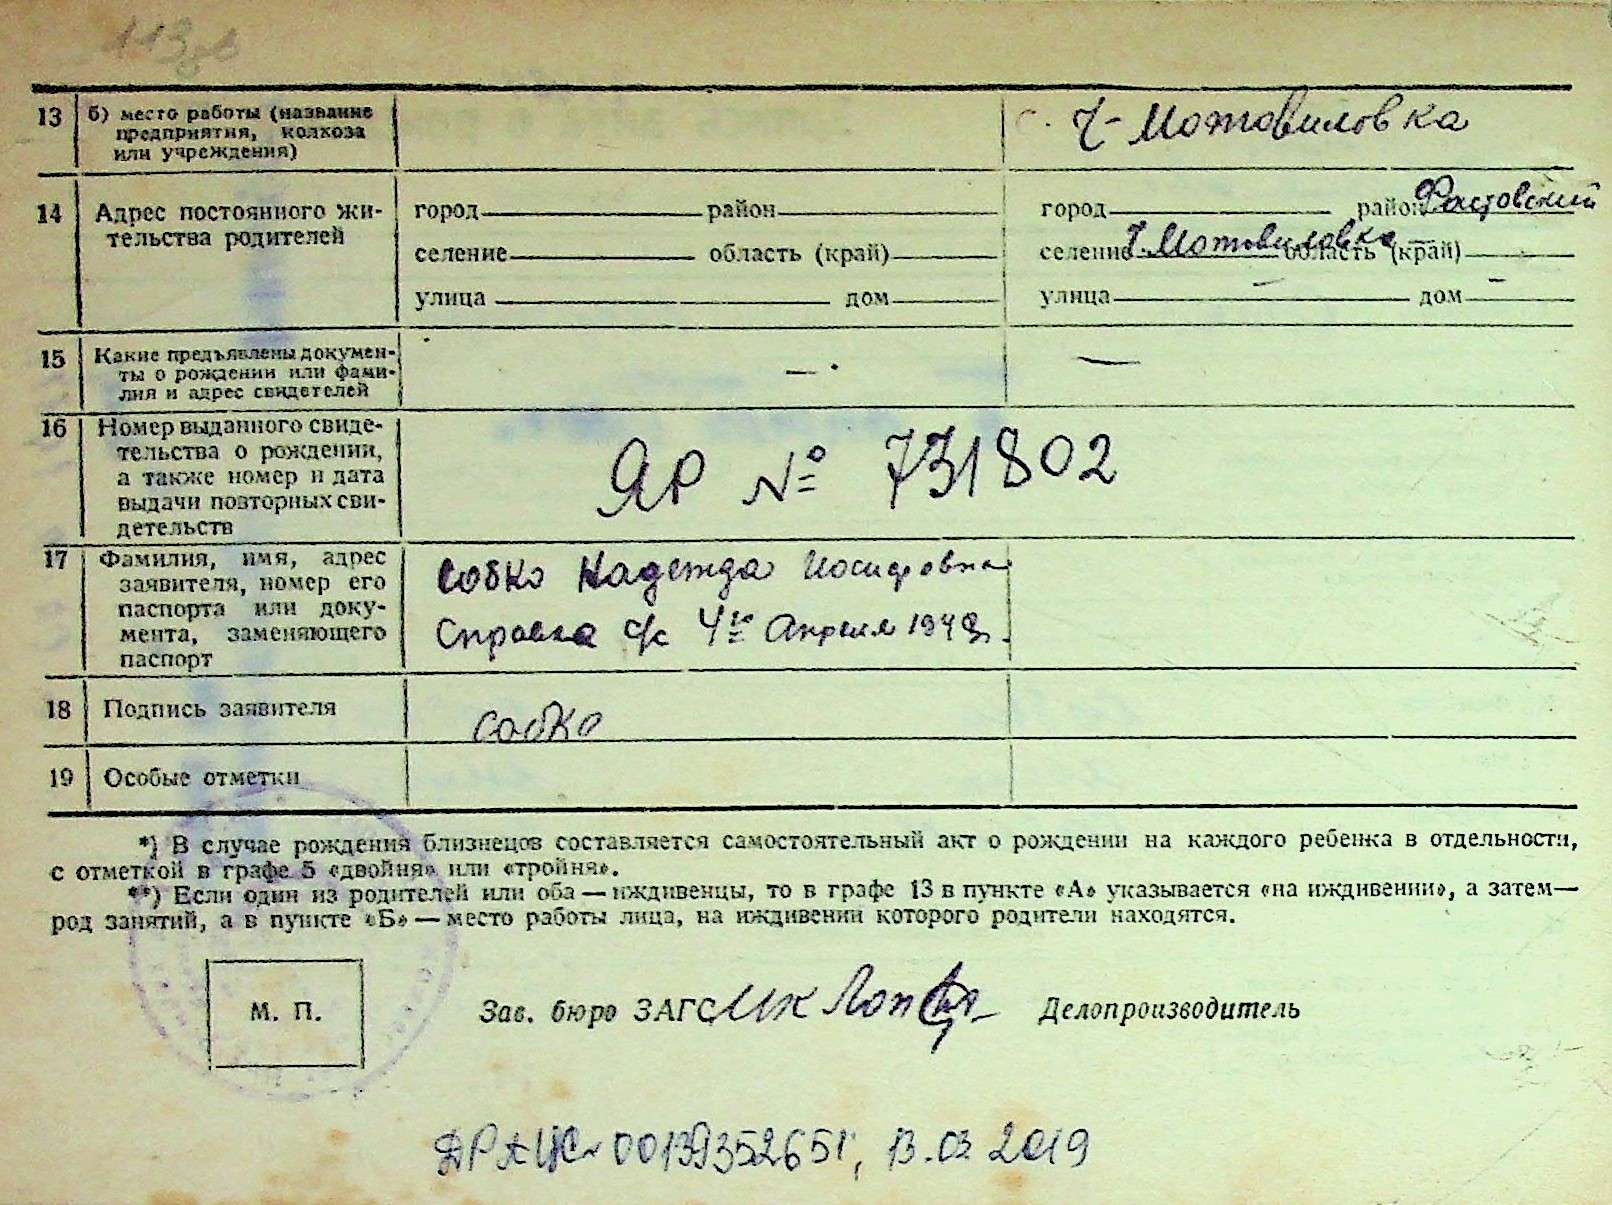 13 б) место работы (название
предприятия, колхоза
или учреждения)
с. Ч-Мотовиловка
14 Адрес постоянного жи-
тельства родителей
город район
селение область (край)
улица дом
город район Фастовский
селение Ч. Мотовиловка область (край)
улица — дом —
15 Какие предъявлены докумен-
ты о рождении или фами-
лия и адрес свидетелей
— —
16 Номер выданного свиде-
тельства о рождении,
а также номер и дата
выдачи повторных сви-
детельств
ЯР № 731802
17 Фамилия, имя, адрес
заявителя, номер его
паспорта или доку-
мента, заменяющего
паспорт
Собко Надежда Иосифовна
Справка с/с 4го Апреля 1949г.
18 Подпись заявителя
Собко
19 Особые отметки
*) В случае рождения близнецов составляется самостоятельный акт о рождении на каждого ребенка в отдельности,
с отметкой в графе 5 «двойня» или «тройня».
**) Если один из родителей или оба — иждивенцы, то в графе 13 в пункте «А» указывается «на иждивении», а затем—
род занятий, а в пункте «Б» — место работы лица, на иждивении которого родители находятся.
М. П.
Зав. бюро ЗАГС Делопроизводитель
ДРАЦС 00139352651, 13.03 2019